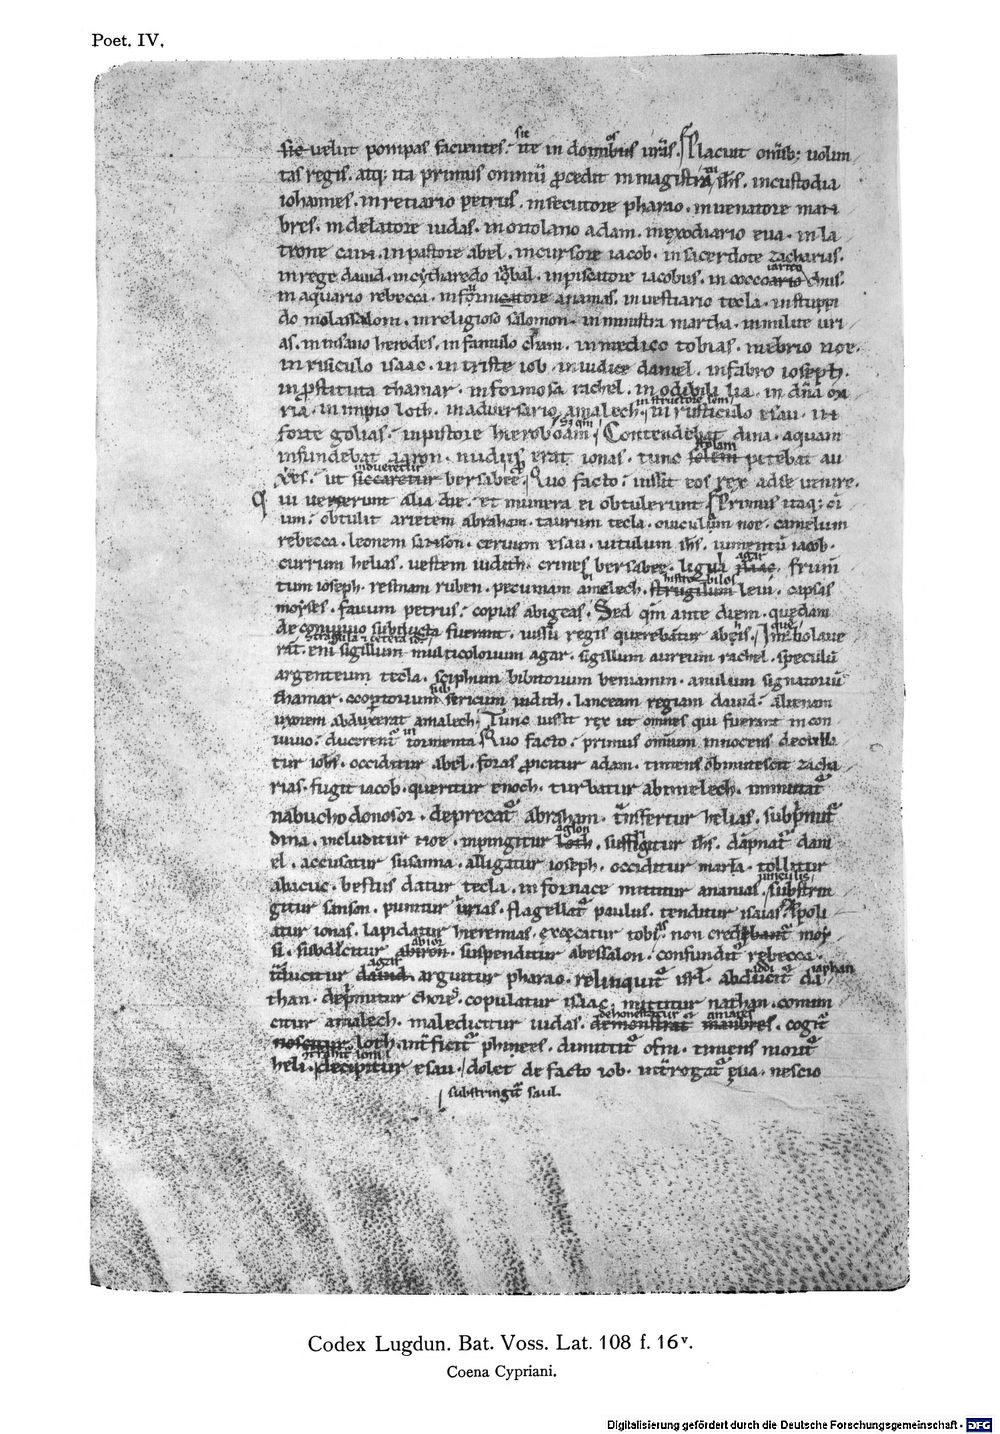 Poet. IV.
sic velut pompas facientes. ite in domibus uras. Placuit omib: uolun
tas regis. atq: ita primus omniū pcedit in magistrū ihs. in custodia
iohannes. in retiario petrus. in secutore pharao. in uenatore man
bres. in delatore iudas. in ortolano adam. in exodiario eua. in la
trone cain. in pastore abel. in cursore iacob. in sacerdote zacharias.
in rege dauid. in cytharedo iobal. in piscatore iacobus. in coco chus.
in aquario rebecca. in ananias. in uestiario tecla. in stuppi
do molassalon. in religioso salomon. in ministra martha. in milite uri
as. in insano herodes. in famulo cham. in medico tobias. in ebrio noe.
in risiculo isaac. in triste iob. in iudice daniel. in fabro ioseph.
in pstituta thamar. in formosa rachel. in odibili lia. in dnā
ria. in impio loth. in aduersario amalech. in rusticulo esau. in
forte golias. in pistore hieroboam. Contendebat dina. aquam
infundebat aaron. nudus erat ionas. tunc petebat au
xes. ut siccaretur bersabee. Quo facto: iussit eos rex ad se uenire.
Qui uenerunt alia die. et munera ei obtulerunt. Primus itaq: oi
um: obtulit arietem abraham. taurum tecla. ouiculam noe. camelum
rebecca. leonem samson. ceruum esau. uitulum ihs. iumentū iacob.
currum helias. uestem iudith. crines bersabee. ligna frum
tum ioseph. restnam ruben. pecuniam amelech. leui. capsas
moyses. fauum petrus: copias abigeas. Sed qm ante diem. quedam
de conuiuio subducta fuerant. iussū regis querebātur ab eis.
rat. eni sigillum multicolorum agar. sigillum aureum rachel. speculū
argenteum tecla. sciphum bibitorium beniamin. anulum signatoriū
thamar. coopertorium sericum iudith. lanceam regiam dauid: alienam
uxorem abduxerat amalech. Tunc iussit rex ut omnes qui fuerant in con
uiuio: ducerent in tormenta. Quo facto: primus omnium innocens decolla
tur iohs. occiditur abel. foras picitur adam. timens obmutescit zacha
rias. fugit iacob. queritur enoch. turbatur abimelech.
nabuchodonosor. deprecat abraham. tnsfertur helias.
dina. includitur noe. inpingitur loth. suffigitur ihs. dāpnat dani
el. accusatur susanna. alligatur ioseph. occiditur maria. tollitur
abacuc. bestiis datur tecla. in fornace mittitur ananias. substrin
gitur sanson. punitur urias. flagellat paulus. tenditur isaias. spoli
atur ionas. lapidatur hieremias. execatur tobias. non moy
si. subducitur suspenditur abessalon. confundit rebecca.
tducitur dauid. arguitur pharao. relinquit isrl. abducit da
than. deprimitur chore. copulatur isaac. mittitur nathan. conuin
citur amalech. maledicitur iudas. demonstrat mambres. cogit
noscitur loth. phinees. dimittit ofni. timens morit
heli. decipitur esau. dolet de facto iob. intrrogat eua. nescio
substringit saul.
Codex Lugdun. Bat. Voss. Lat. 108 f. 16v.
Coena Cypriani.
Digitalisierung gefördert durch die Deutsche Forschungsgemeinschaft - DFG